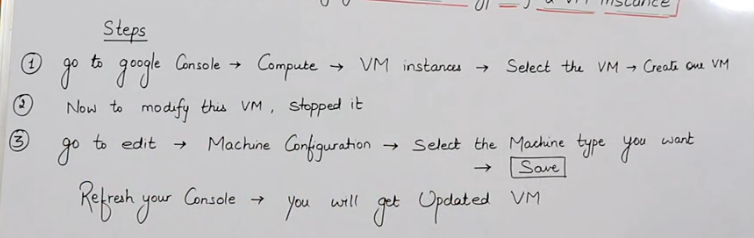 a VM instance
Steps
① go to google Console → Compute → VM instances → Select the VM → Create one VM
② Now to modify this VM, stopped it
③ go to edit → Machine Configuration → Select the Machine type you want
→ Save
Refresh your Console → you will get Updated VM